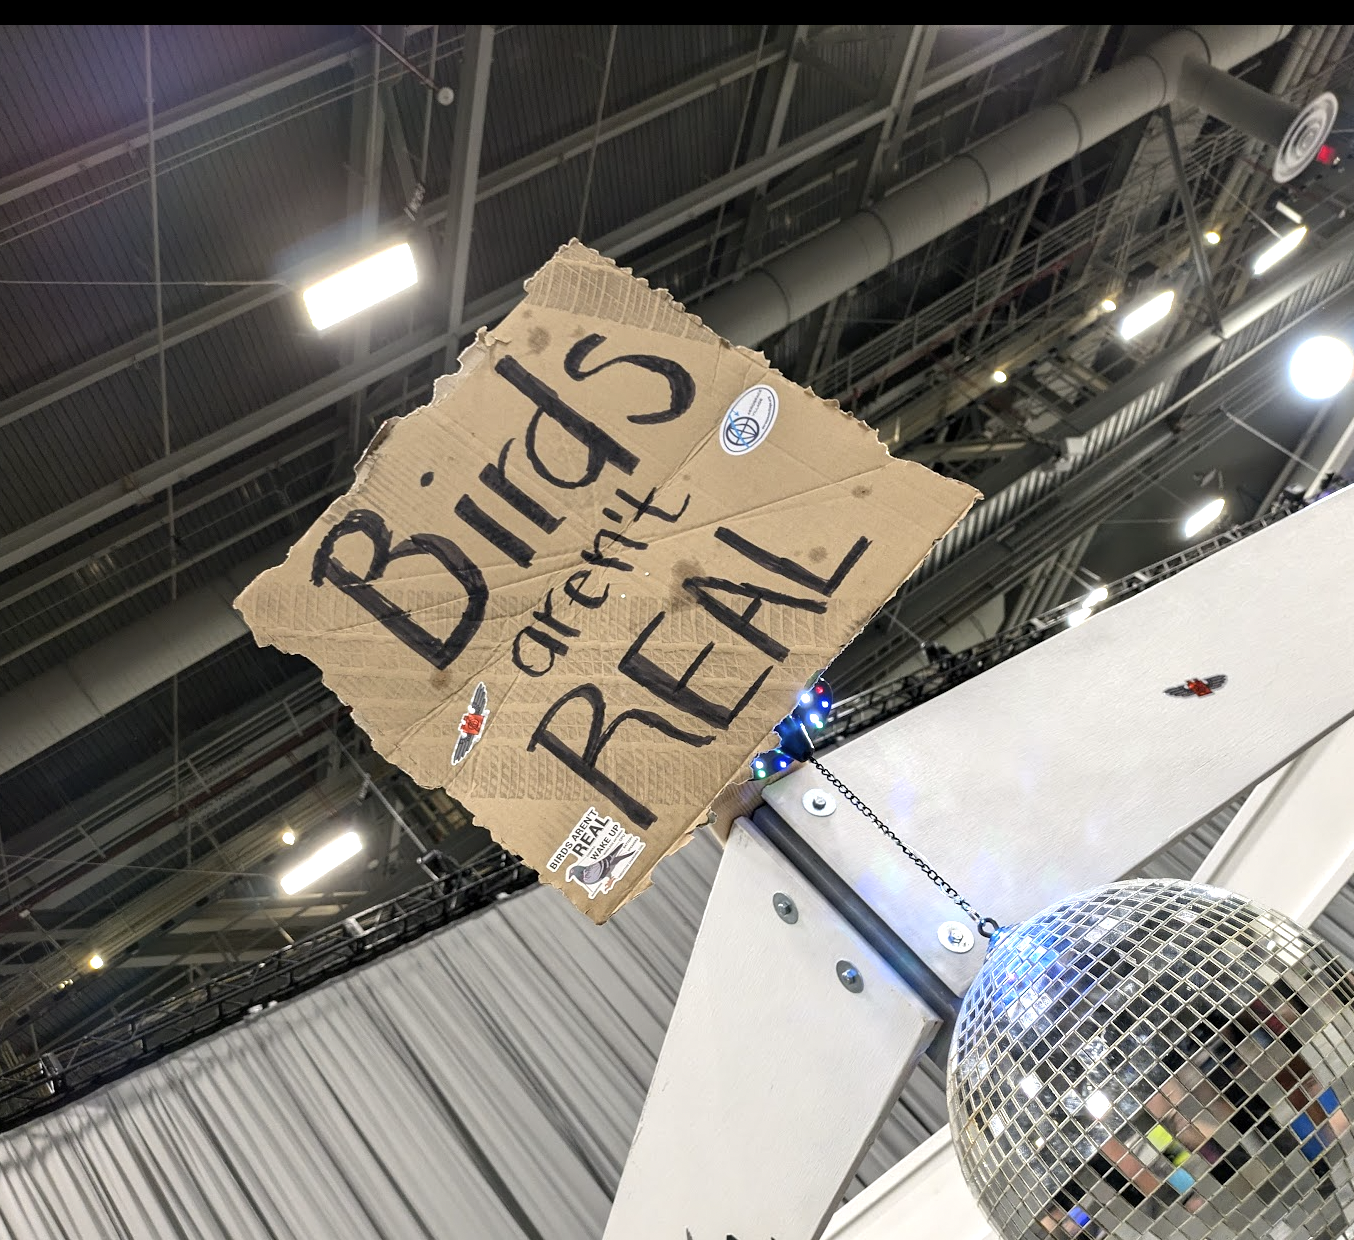 Birds
aren't
REAL
BIRDS AREN'T
REAL
WAKE UP